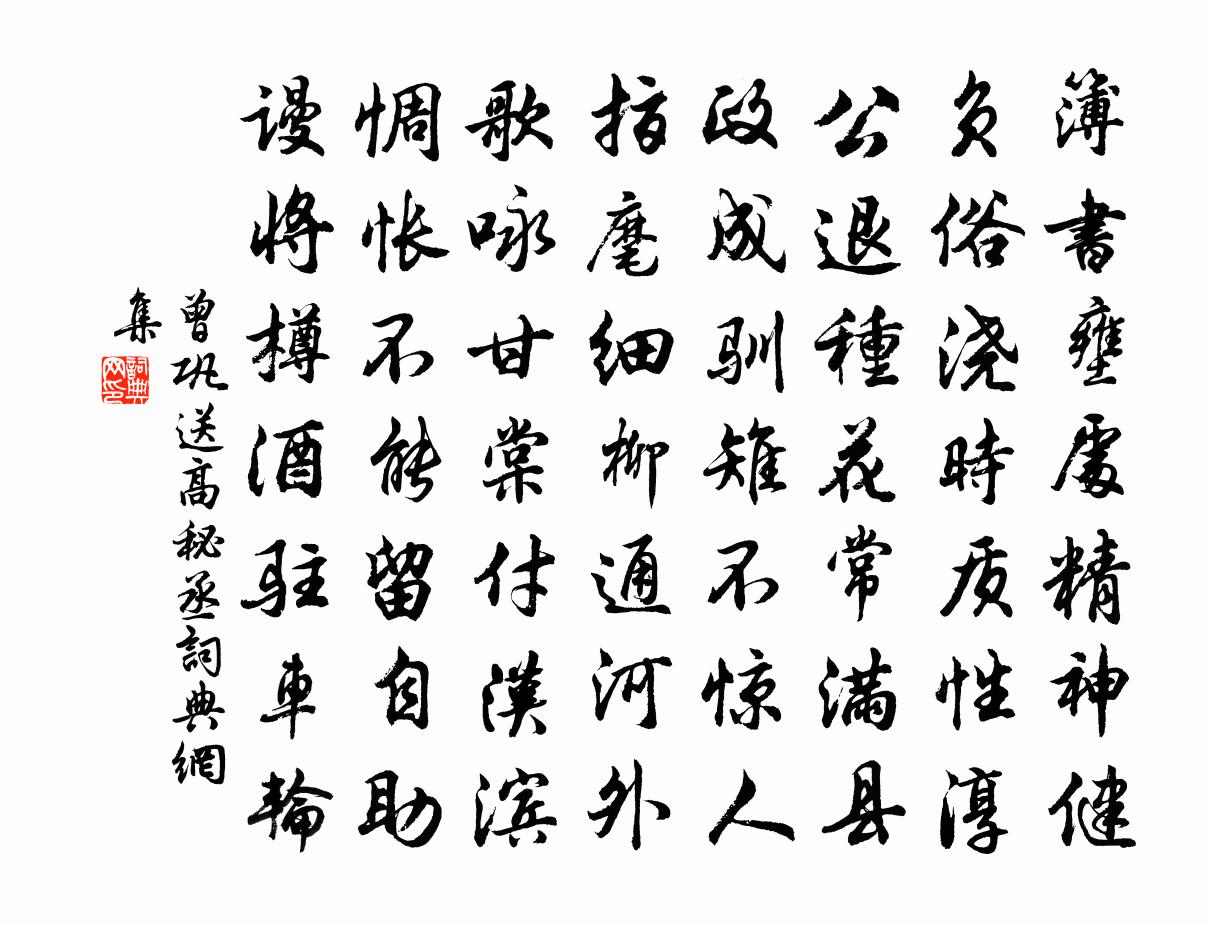 簿書壅處精神健
负俗浇時质性淳
公退種花常滿县
政成馴雉不惊人
指麾细柳通河外
歌咏甘棠付漢滨
惆怅不能留自助
谩将樽酒驻車輪
曾巩送高秘丞詞典網
集
詞典网印